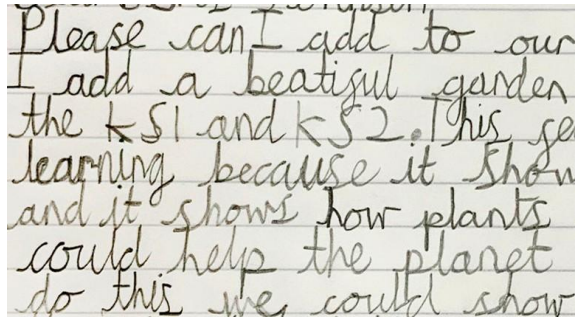 Please can I add to our
I add a beatiful garden
the KS1 and KS2. This se
learning because it show
and it shows how plants
could help the planet
do this we could show